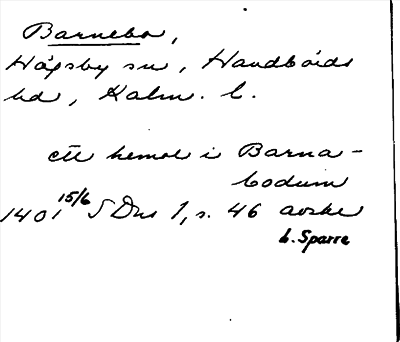 Barnebo,
Högsby sn, Handbörds
hd, Kalm. l.
ett hemol i Barna-
bodum
1401 15/6 SDns 1, s. 46 avskr
b. Sparre